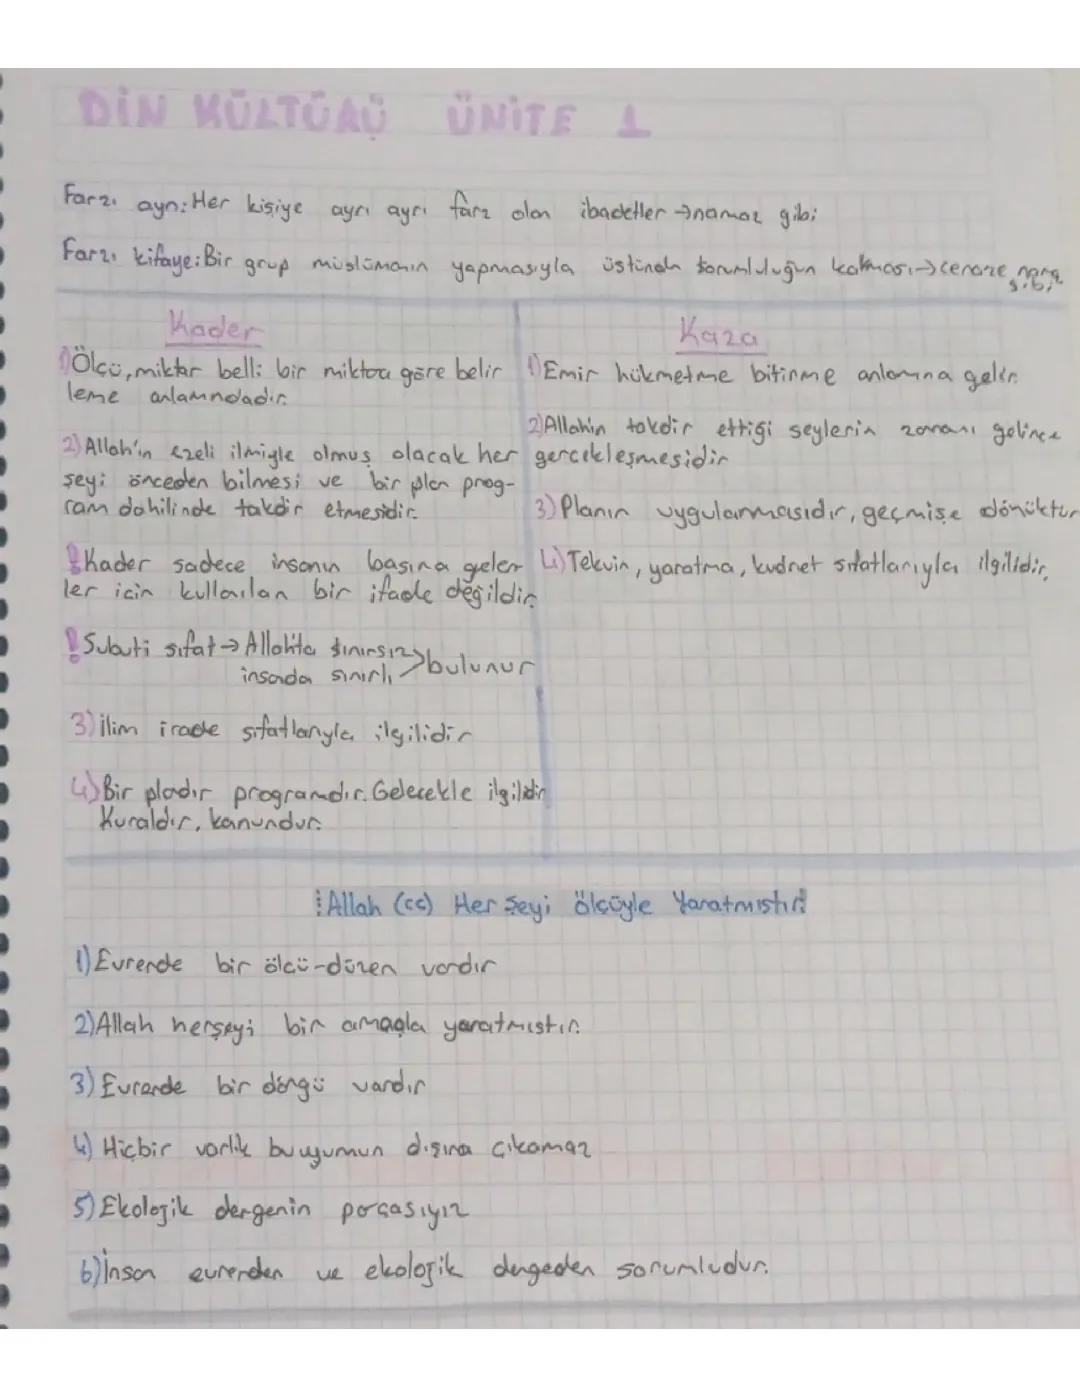 DİN KÜLTÜRÜ ÜNİTE 1
Farzı ayn: Her kişiye ayrı ayrı farz olan ibadetler → namaz gibi
Farzı kifaye: Bir grup müslümanın yapmasıyla üstünden sorumluluğun kalkması → cenaze namazı
gibi
Kader
1) Ölçü, miktar belli bir miktara göre belir
leme anlamındadır.
2) Allah'ın ezeli ilmiyle olmuş olacak her
şeyi önceden bilmesi ve bir plan prog-
ram dahilinde takdir etmesidir.
! Kader sadece insanın başına gelen
ler için kullanılan bir ifade değildir.
! Subuti sıfat → Allah'ta sınırsız > bulunur
insanda sınırlı
3) İlim irade sıfatlarıyla ilgilidir
4) Bir plandır programdır. Gelecekle ilgilidir
Kuraldır, kanundur.
Kaza
1) Emir hükmetme bitirme anlamına gelir.
2) Allah'ın takdir ettiği şeylerin zamanı gelince
gerçekleşmesidir
3) Planın uygulanmasıdır, geçmişe dönüktür
4) Tekvin, yaratma, kudret sıfatlarıyla ilgilidir.
! Allah (cc) Her Şeyi ölçüyle Yaratmıştır!
1) Evrende bir ölçü-düzen vardır
2) Allah herşeyi bir amaçla yaratmıştır.
3) Evrende bir döngü vardır
4) Hiçbir varlık bu uyumun dışına çıkamaz
5) Ekolojik dengenin parçasıyız
6) İnsan evrenden ve ekolojik dengeden sorumludur.